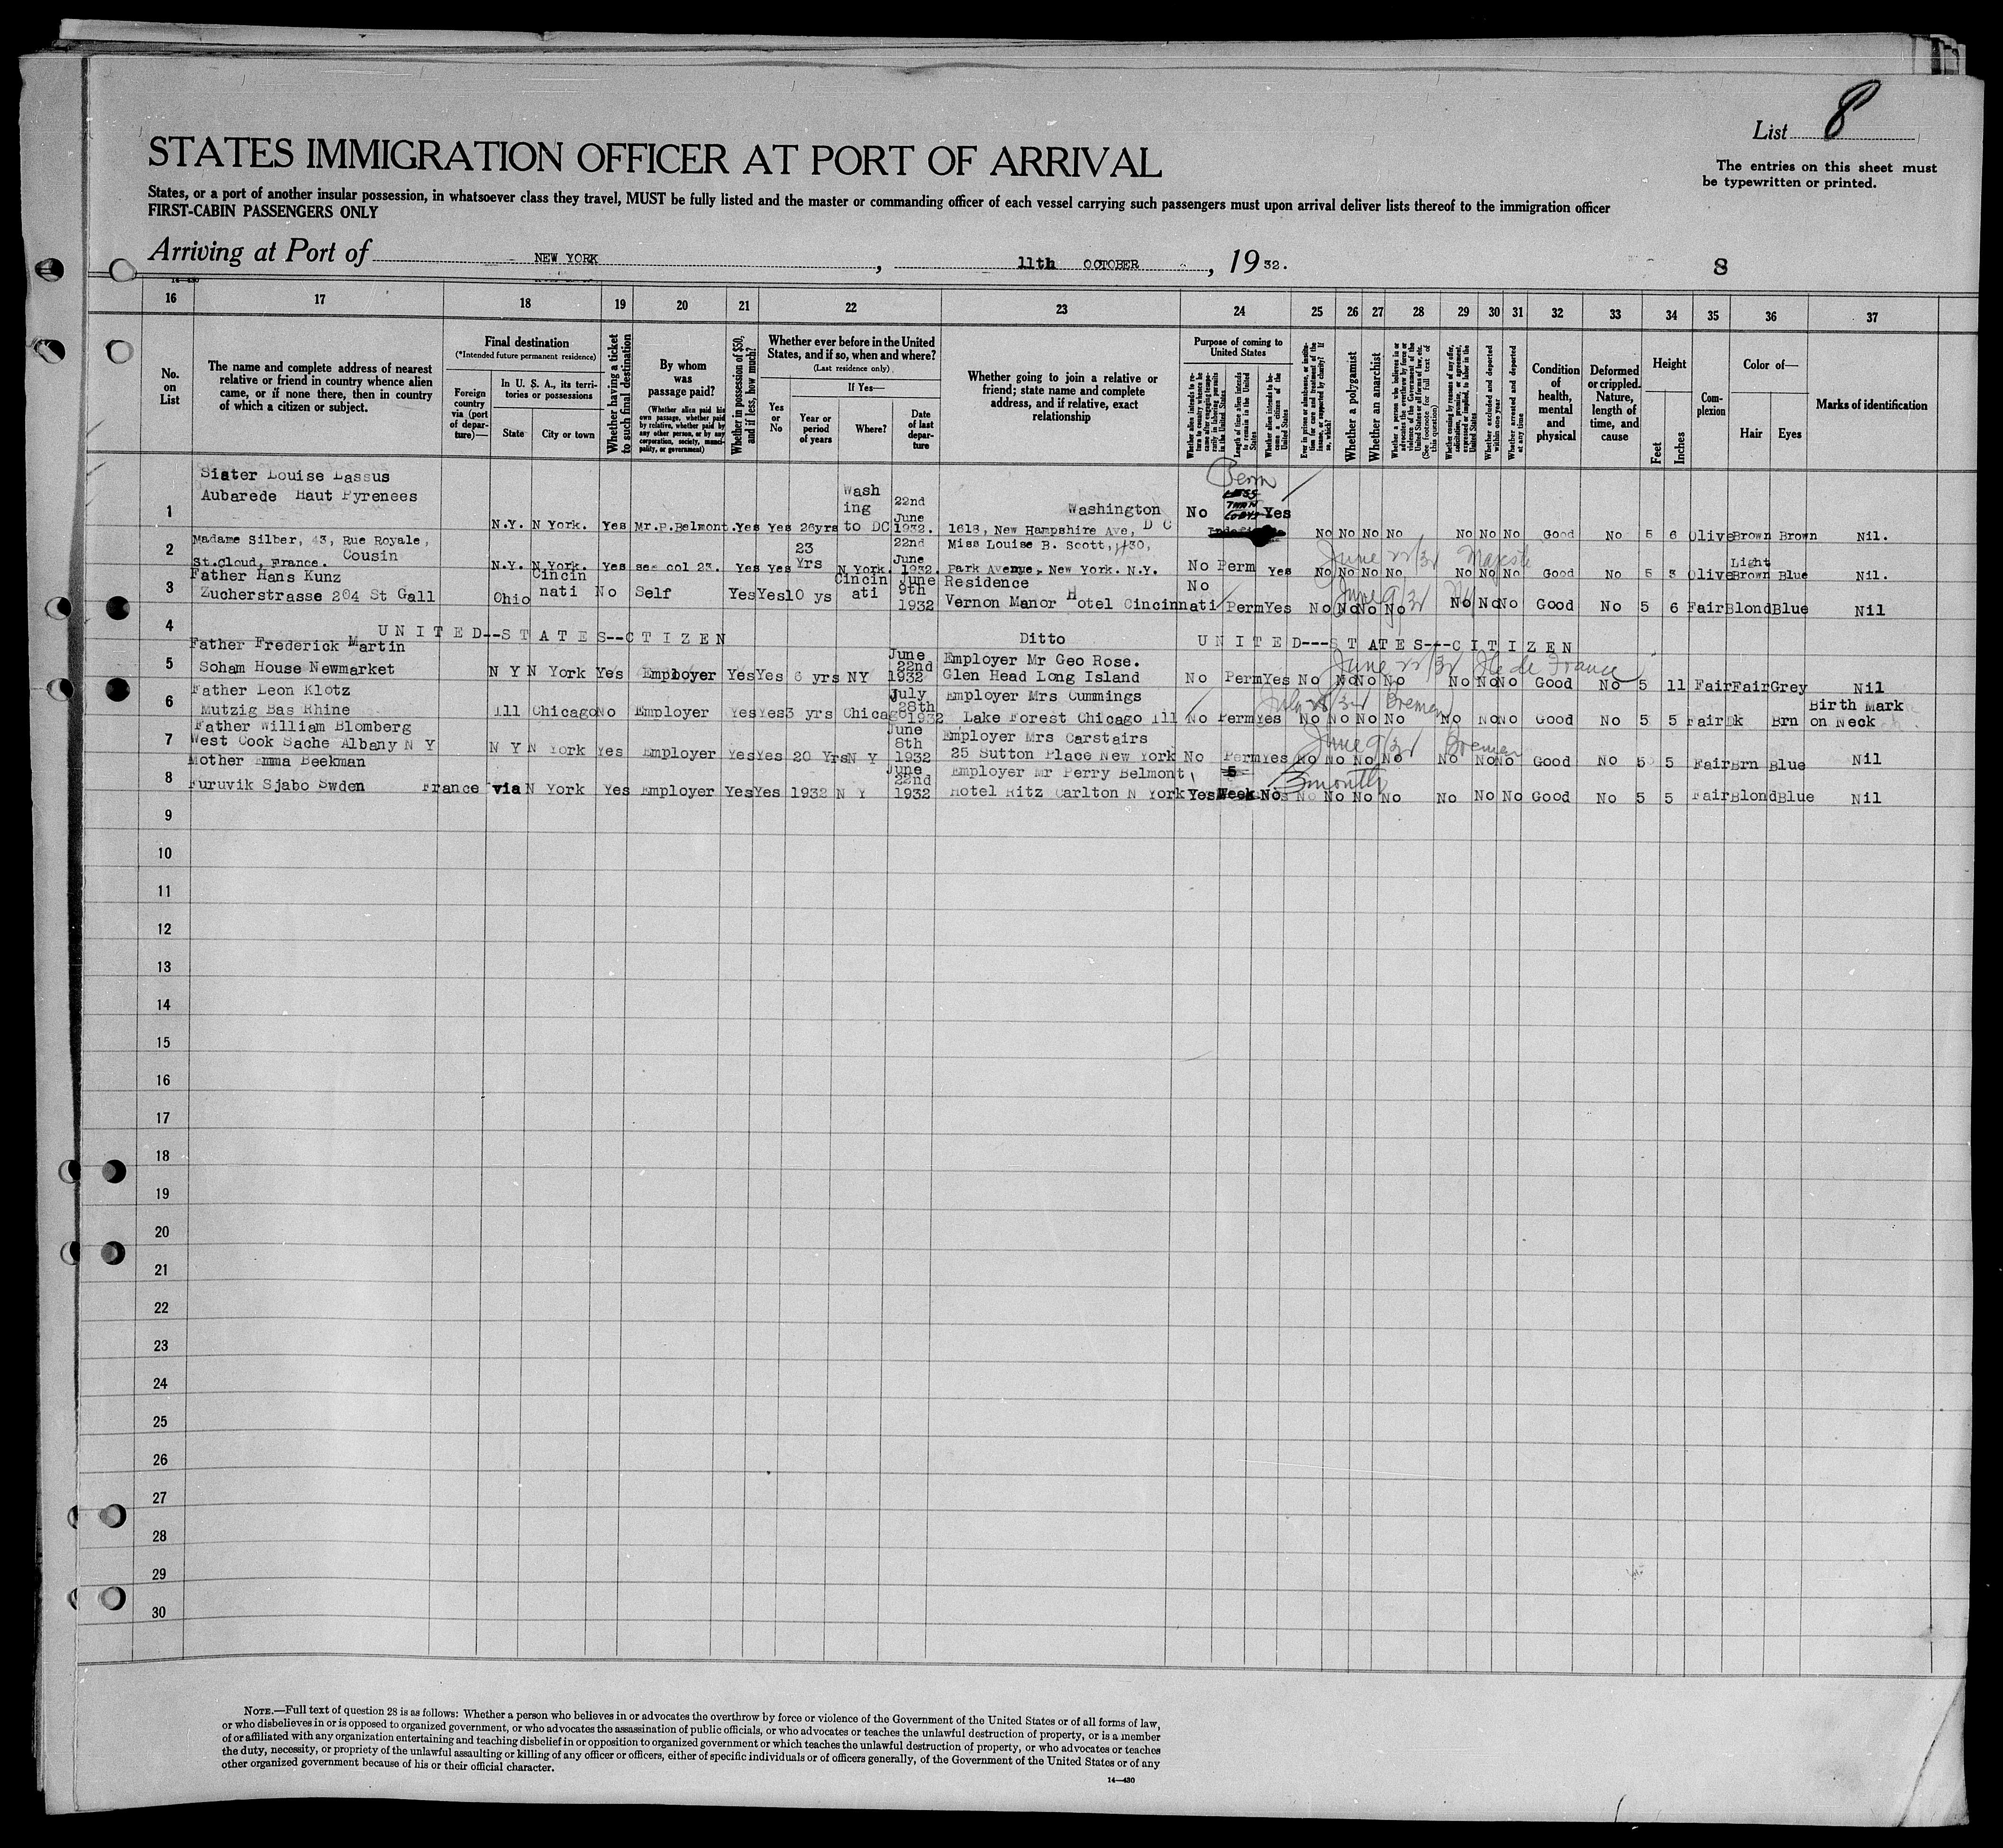 List 8
STATES IMMIGRATION OFFICER AT PORT OF ARRIVAL
The entries on this sheet must
be typewritten or printed.
States, or a port of another insular possession, in whatsoever class they travel, MUST be fully listed and the master or commanding officer of each vessel carrying such passengers must upon arrival deliver lists thereof to the immigration officer
FIRST-CABIN PASSENGERS ONLY
Arriving at Port of NEW YORK, 11th OCTOBER, 1932.
8
14—430
16 17 18 19 20 21 22 23 24 25 26 27 28 29 30 31 32 33 34 35 36 37
No. on List
The name and complete address of nearest
relative or friend in country whence alien
came, or if none there, then in country
of which a citizen or subject.
Final destination
(*Intended future permanent residence)
Foreign country via (port of departure)—
In U. S. A., its territories or possessions
State
City or town
Whether having a ticket to such final destination
By whom was passage paid?
(Whether alien paid his own passage, whether paid by relative, whether paid by any other person, or by any corporation, society, municipality, or government)
Whether in possession of $50, and if less, how much?
Whether ever before in the United
States, and if so, when and where?
(Last residence only)
Yes or No
If Yes—
Year or period of years
Where?
Date of last departure
Whether going to join a relative or
friend; state name and complete
address, and if relative, exact
relationship
Purpose of coming to United States
Whether alien intends to return to country whence he came after engaging temporarily in laboring pursuits in the United States
Length of time alien intends to remain in the United States
Whether alien intends to become a citizen of the United States
Ever in prison or almshouse, or institution for care and treatment of the insane, or supported by charity? If so, which?
Whether a polygamist
Whether an anarchist
Whether a person who believes in or advocates the overthrow by force or violence of the Government of the United States or all forms of law, etc. (See footnote for full text of this question)
Whether coming by reason of any offer, solicitation, promise, or agreement, expressed or implied, to labor in the United States
Whether excluded and deported within one year
Whether arrested and deported at any time
Condition of health, mental and physical
Deformed or crippled. Nature, length of time, and cause
Height
Feet
Inches
Complexion
Color of—
Hair
Eyes
Marks of identification
1 Sister Louise Lassus
Aubarede Haut Pyrenees
N.Y. N York. Yes Mr.P.Belmont. Yes Yes 26yrs Washing to DC 22nd June 1932. Washington 1618, New Hampshire Ave, D C No Perm LESS THAN Yes No No No No No No No Good No 5 6 Olive Brown Brown Nil.
2 Madame Silber, 43, Rue Royale,
St.Cloud, France. Cousin
N.Y. N York. Yes see col 23. Yes Yes 23 Yrs N York. 22nd June 1932. Miss Louise B. Scott, 430, Park Avenue, New York. N.Y. No Perm Yes No No No No No No No Good No 5 3 Olive Light Brown Blue Nil.
June 22/32 Majestic
3 Father Hans Kunz
Zucherstrasse 204 St Gall
Ohio Cincin nati No Self Yes Yes 10 ys Cincin ati June 9th 1932 Residence Vernon Manor Hotel Cincinnati No Perm Yes No No No No No No No Good No 5 6 Fair Blond Blue Nil
June 9/32
4 UNITED--STATES--CTIZEN Ditto UNITED---STATES---CITIZEN
5 Father Frederick Martin
Soham House Newmarket
N Y N York Yes Employer Yes Yes 6 yrs NY June 22nd 1932 Employer Mr Geo Rose. Glen Head Long Island No Perm Yes No No No No No No No Good No 5 11 Fair Fair Grey Nil
June 22/32 Ile de France
6 Father Leon Klotz
Mutzig Bas Rhine
Ill Chicago No Employer Yes Yes 3 yrs Chicago July 28th 1932 Employer Mrs Cummings Lake Forest Chicago Ill No Perm Yes No No No No No No No Good No 5 5 Fair Dk Brn Birth Mark on Neck
July 28/32 Bremen
7 Father William Blomberg
West Cook Sache Albany N Y
N Y N York Yes Employer Yes Yes 20 Yrs N Y June 8th 1932 Employer Mrs Carstairs 25 Sutton Place New York No Perm Yes No No No No No No No Good No 5 5 Fair Brn Blue Nil
June 9/32 Bremen
8 Mother Emma Beekman
Furuvik Sjabo Swden
France via N York Yes Employer Yes Yes 1932 N Y June 22nd 1932 Employer Mr Perry Belmont Hotel Ritz Carlton N York Yes 5 Week No No No No No No No No Good No 5 5 Fair Blond Blue Nil
3 months
9
10
11
12
13
14
15
16
17
18
19
20
21
22
23
24
25
26
27
28
29
30
NOTE.—Full text of question 28 is as follows: Whether a person who believes in or advocates the overthrow by force or violence of the Government of the United States or of all forms of law,
or who disbelieves in or is opposed to organized government, or who advocates the assassination of public officials, or who advocates or teaches the unlawful destruction of property, or is a member
of or affiliated with any organization entertaining and teaching disbelief in or opposition to organized government or which teaches the unlawful destruction of property, or who advocates or teaches
the duty, necessity, or propriety of the unlawful assaulting or killing of any officer or officers, either of specific individuals or of officers generally, of the Government of the United States or of any
other organized government because of his or their official character.
14—430